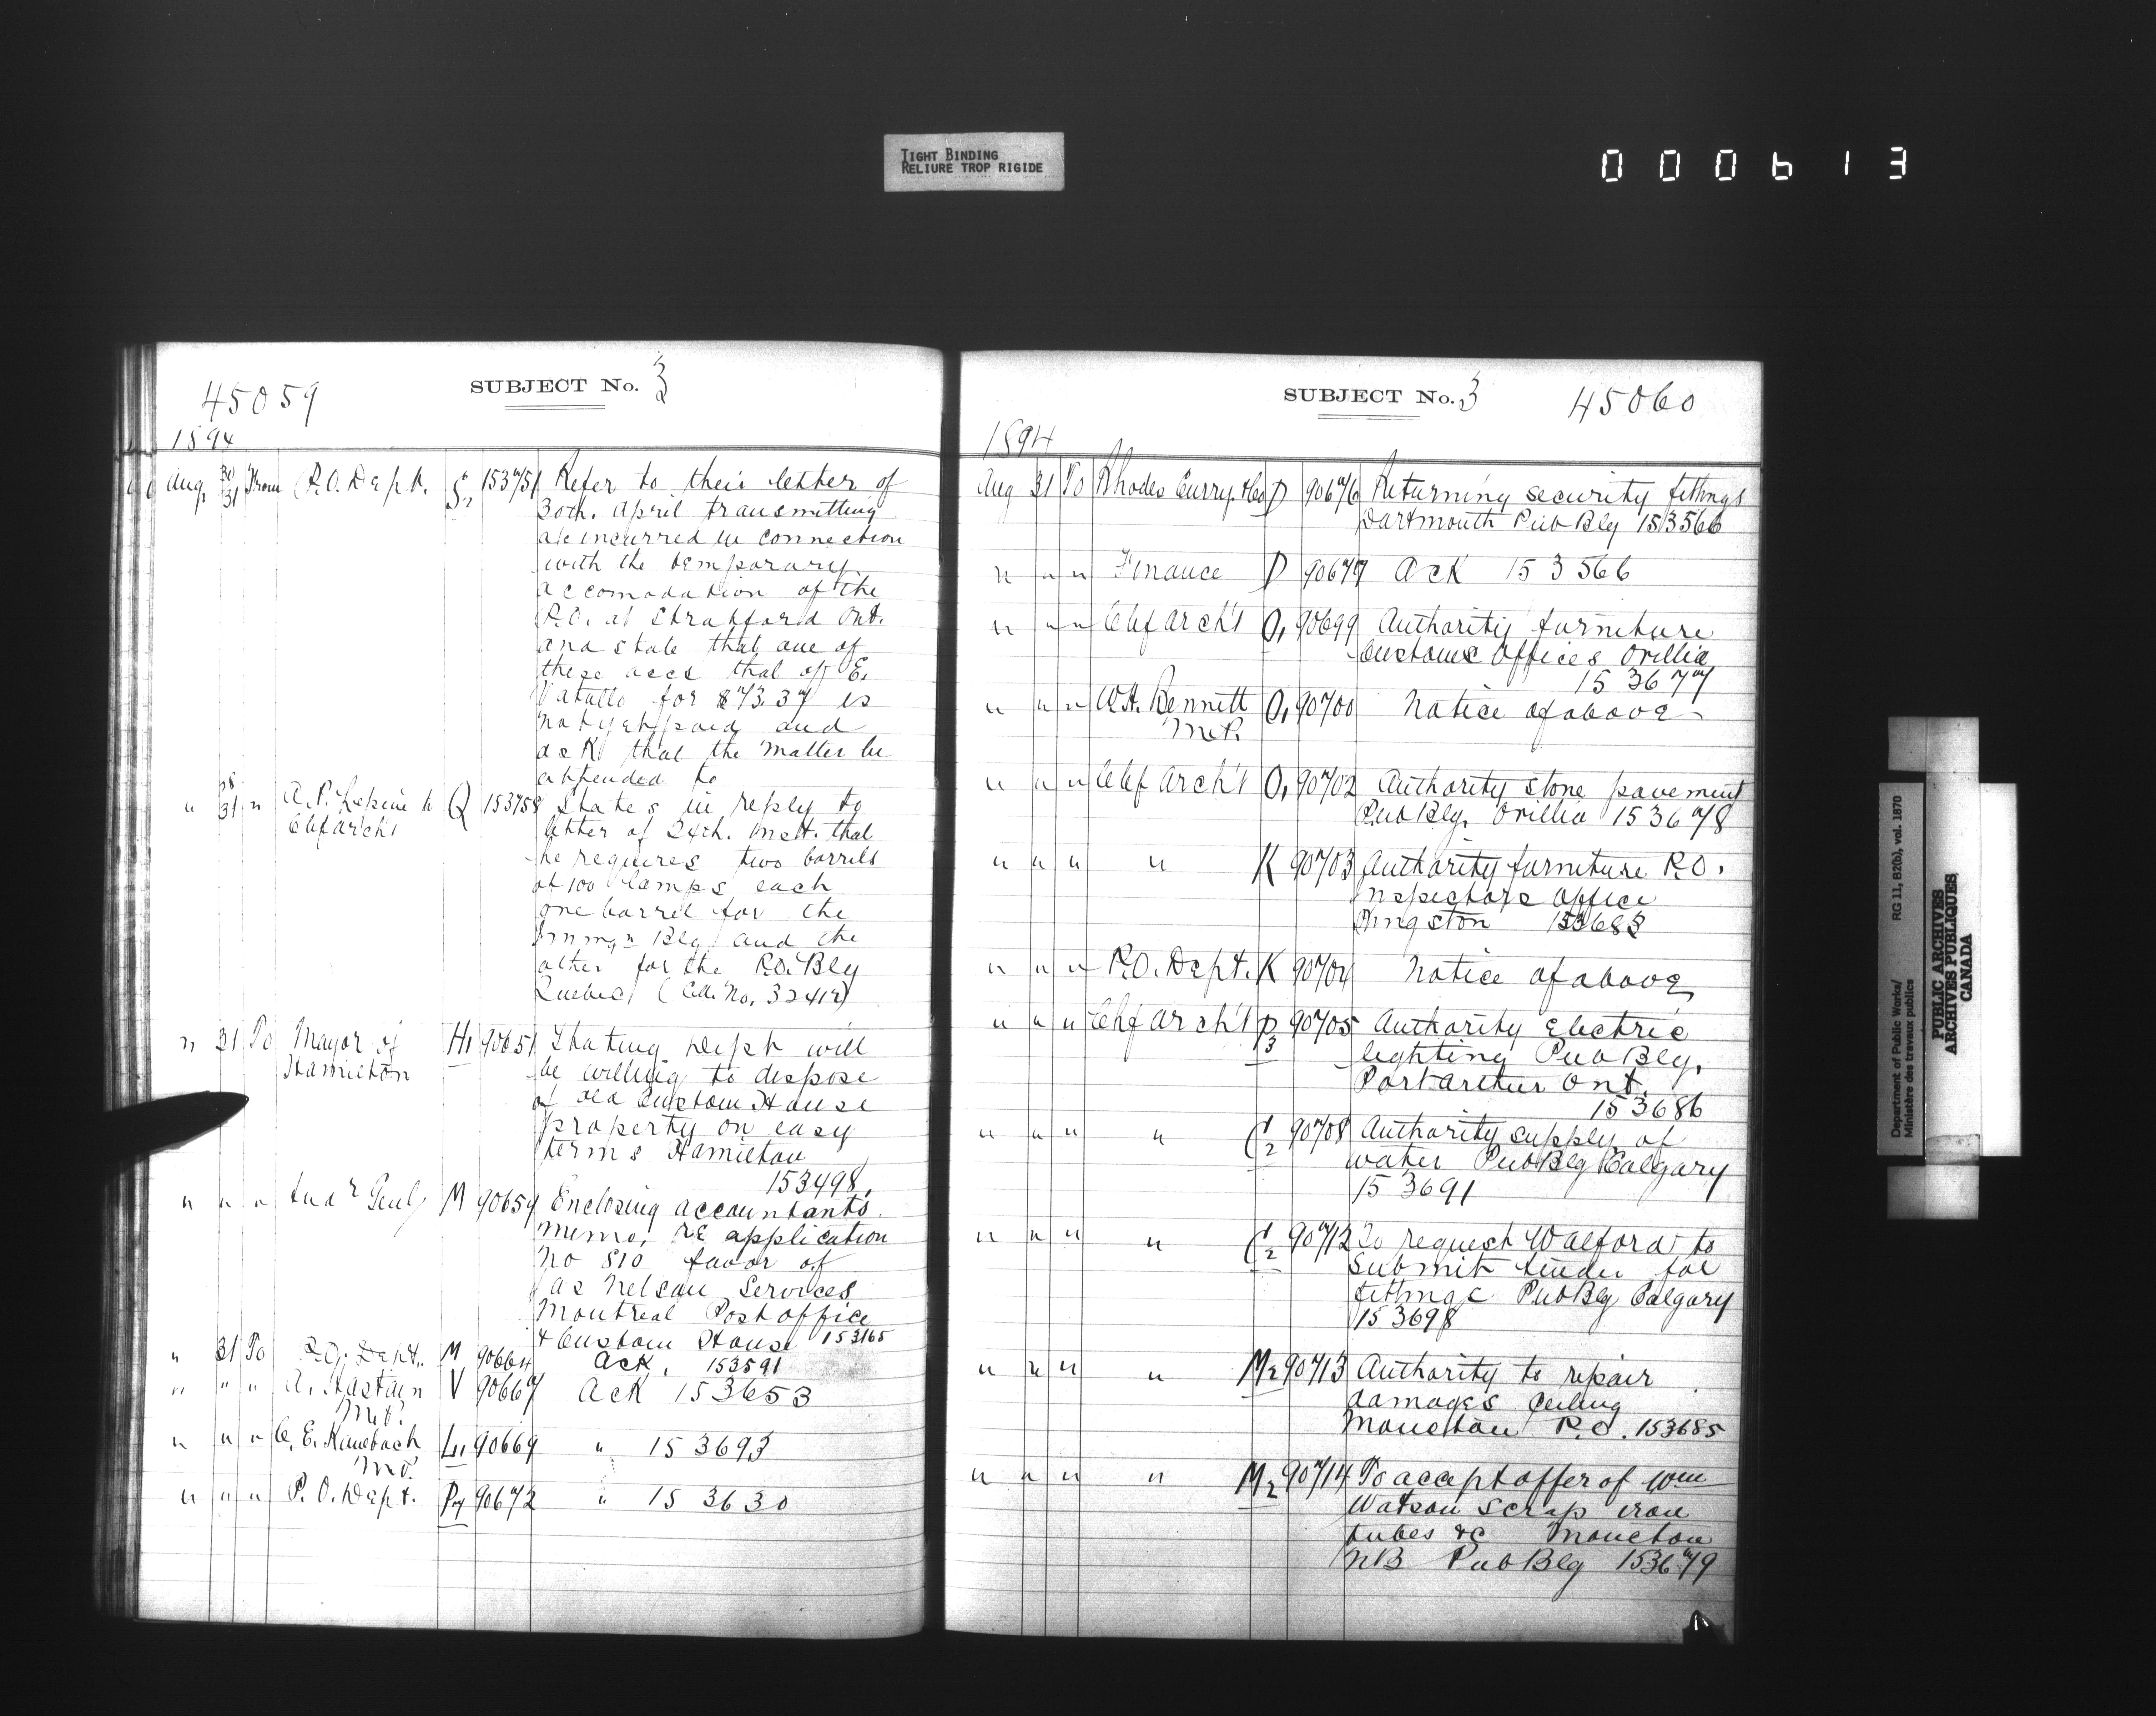 TIGHT BINDING
RELIURE TROP RIGIDE
000613
45059
SUBJECT No. 3
1894
Aug. 30/31 From P.O. Dept. S2 153751 Refer to their letter of
30th. April transmitting
a/c incurred in connection
with the temporary
accomodation of the
P.O. at Stratford Ont.
and state that one of
these accs that of E.
for $73.37 is
not yet paid and
ask that the matter be
attended to
" 28/31 " A. P. Lepine to Q 153758 States in reply to
Chf archt letter of 24th. inst. that
he requires two barrels
of 100 lamps each
one barrel for the
Bldg and the
other for the P.O. Bldg
Quebec (Cd. No. 32412)
" 31 To Mayor of H1 90651 Stating Dept will
Hamilton be willing to dispose
of old Custom House
property on easy
terms Hamilton
153498.
" " " Audr Genl M 90659 Enclosing accountants
memo. re application
No 810 favor of
Jas Nelson Services
Montreal Post office
& Custom House 153165
" 31 To P.O. Dept. M 90664 Ack. 153591
" " " A. Haslam V 90667 Ack 153653
M.P.
" " " C. E. Kaulbach L11 90669 " 153693
M.P.
" " " P. O. Dept. 90672 " 153630
SUBJECT No. 3
45060
1894
Aug 31 To Rhodes Curry & Co D 90676 Returning security fittings
Dartmouth Pub Bldg 153566
" " " Finance D 90677 Ack 153566
" " " Chf archt O1 90699 Authority furniture
Customs Offices Orillia
153677
" " " W.H. Bennett O1 90700 Notice of above
M.P.
" " " Chf archt O1 90702 Authority stone pavement
Pub Bldg. Orillia 153678
" " " " K 90703 Authority furniture P.O.
Inspectors Office
Kingston 153683
" " " P.O. Dept. K 90704 Notice of above
" " " Chf archt P3 90705 Authority Electric
lighting Pub Bldg,
Port Arthur Ont.
153686
" " " " C2 90708 Authority supply of
water Pub Bldg Calgary
153691
" " " " C2 90712 To request Walford to
submit tender for
fittings Pub Bldg Calgary
153698
" " " " M2 90713 Authority to repair
damages Ceiling
Moncton P.O. 153685
" " " " M2 90714 To accept offer of Wm
Watson scrap iron
tubes &c Moncton
NB Pub Bldg 153679
Department of Public Works/ RG 11, B2(b), vol. 1870
Ministère des travaux publics
PUBLIC ARCHIVES
ARCHIVES PUBLIQUES
CANADA